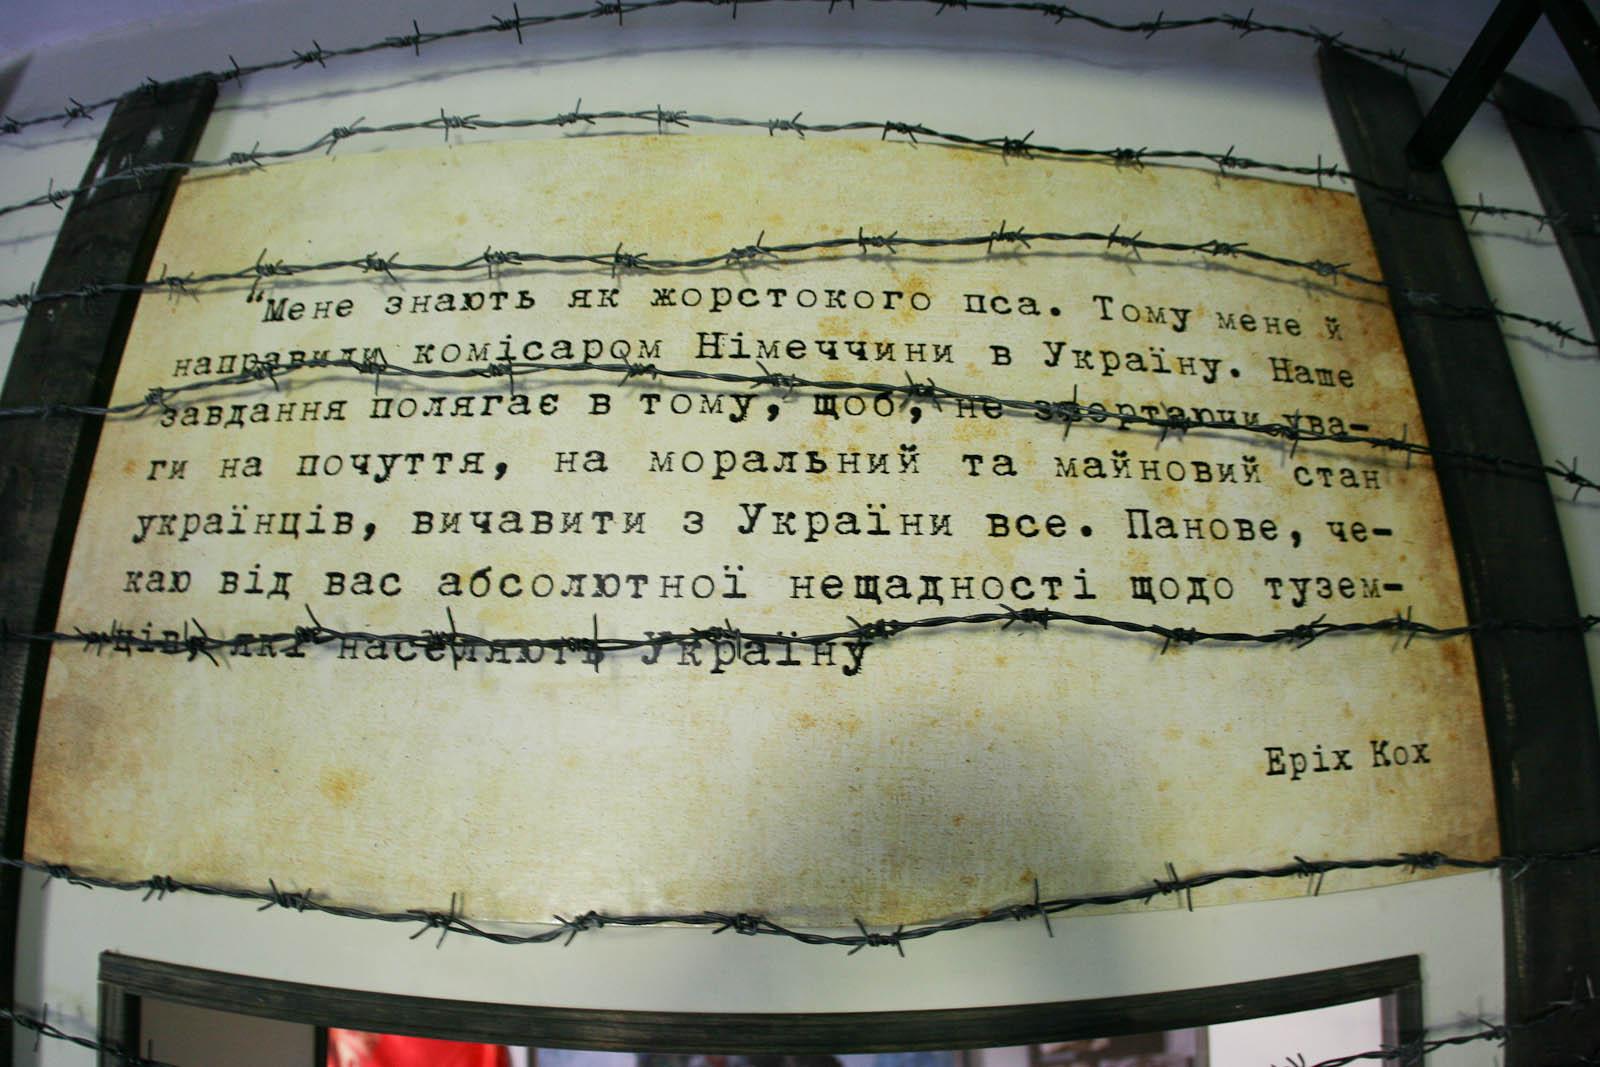 “Мене знають як жорстокого пса. Тому мене й
направили комісаром Німеччини в Україну. Наше
завдання полягає в тому, щоб, не звертаючи ува-
ги на почуття, на моральний та майновий стан
українців, вичавити з України все. Панове, че-
каю від вас абсолютної нещадності щодо тузем-
ців, які населяють Україну
Еріх Кох